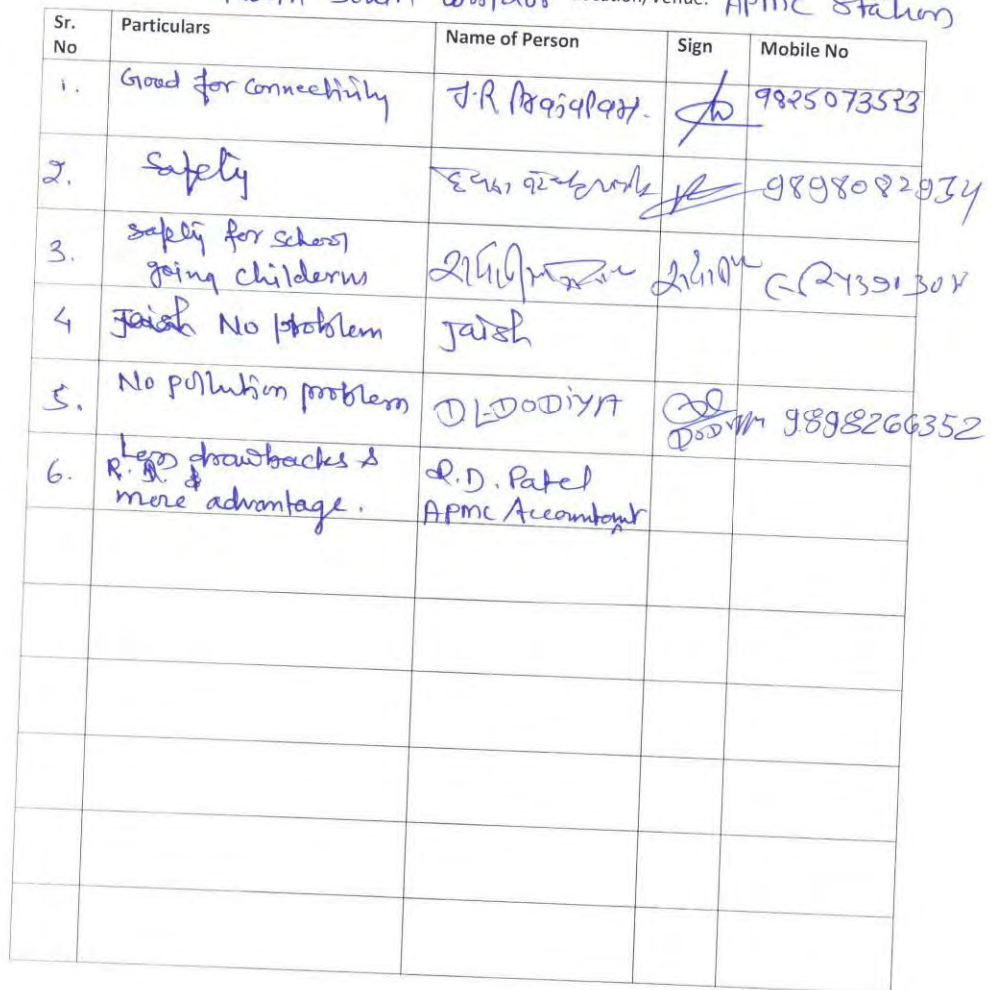 North South Location/Venue: APMC Station
Sr. No Particulars Name of Person Sign Mobile No
1. Good for connectivity J.R Prajapati. 9825073523
2. Safety 9898082934
3. safety for school
going childerns
4 Jaish No problem Jaish
5. No pollution problem D L DODIYA DODIYA 9898266352
6. Less drawbacks &
more advantage.
R.D. Patel
APMC Accountant